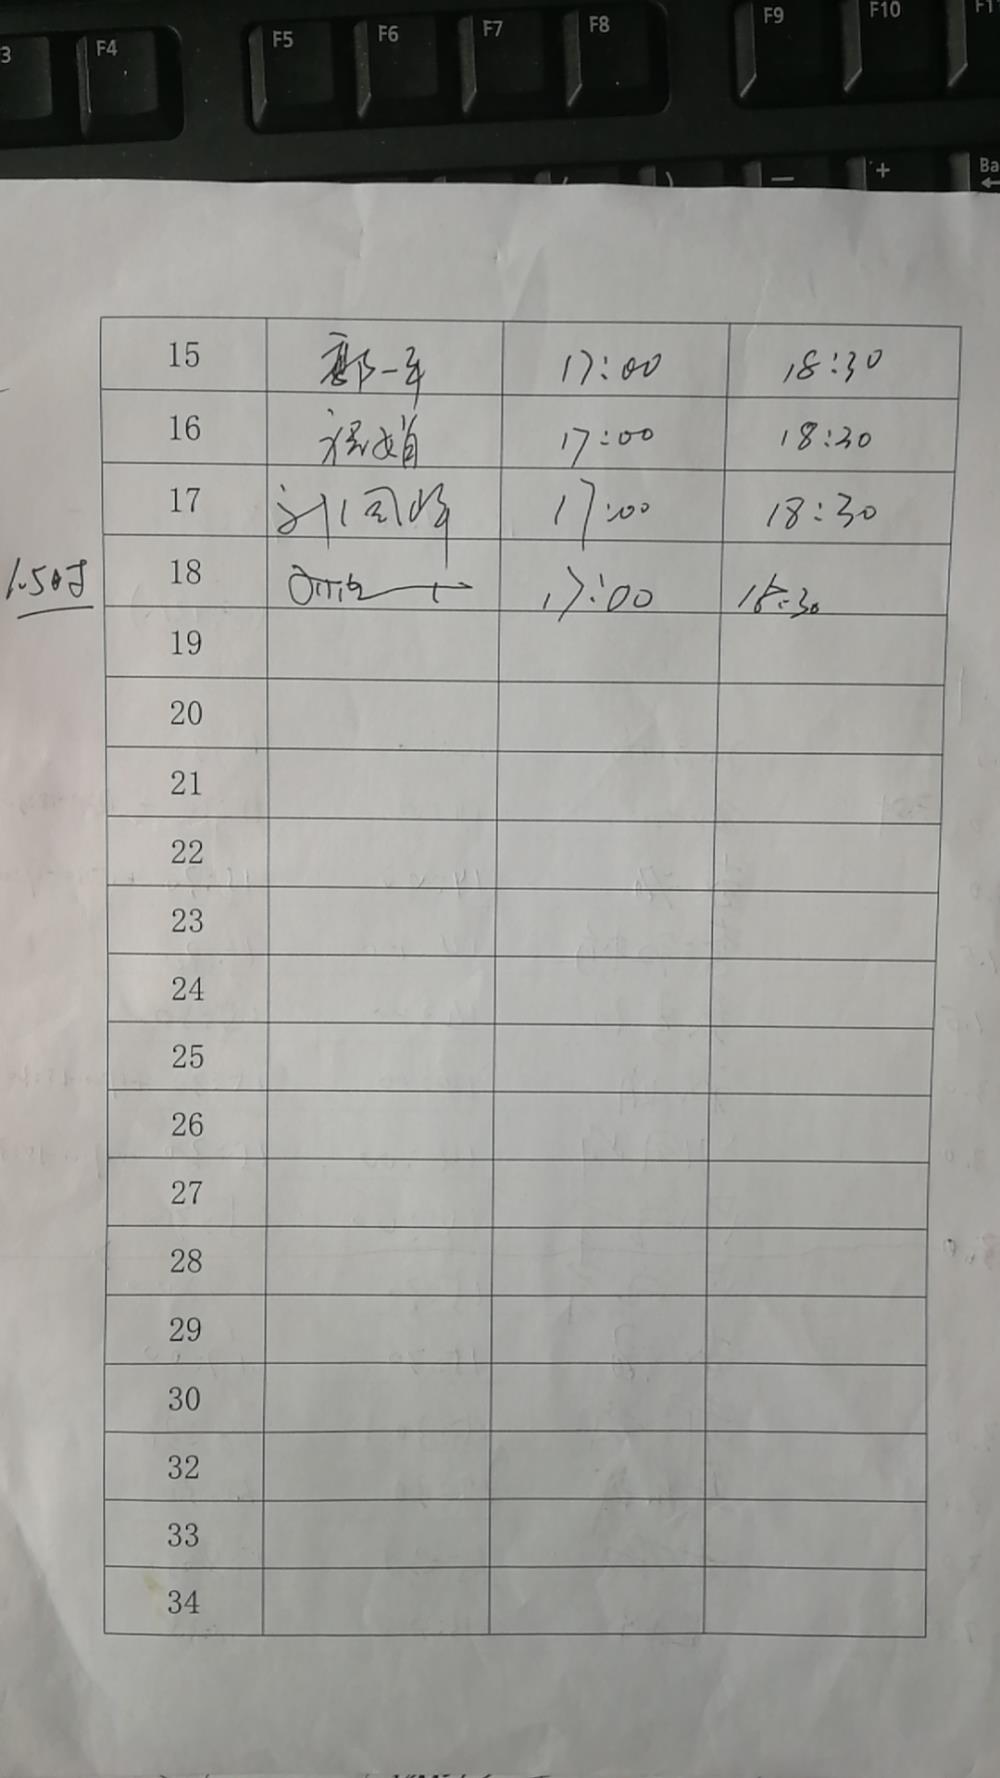 3 F4 F5 F6 F7 F8 F9 F10 F11
— + Ba
15 17:00 18:30
16 17:00 18:30
17 17:00 18:30
1.5时
18 17:00 18:30
19
20
21
22
23
24
25
26
27
28
29
30
32
33
34